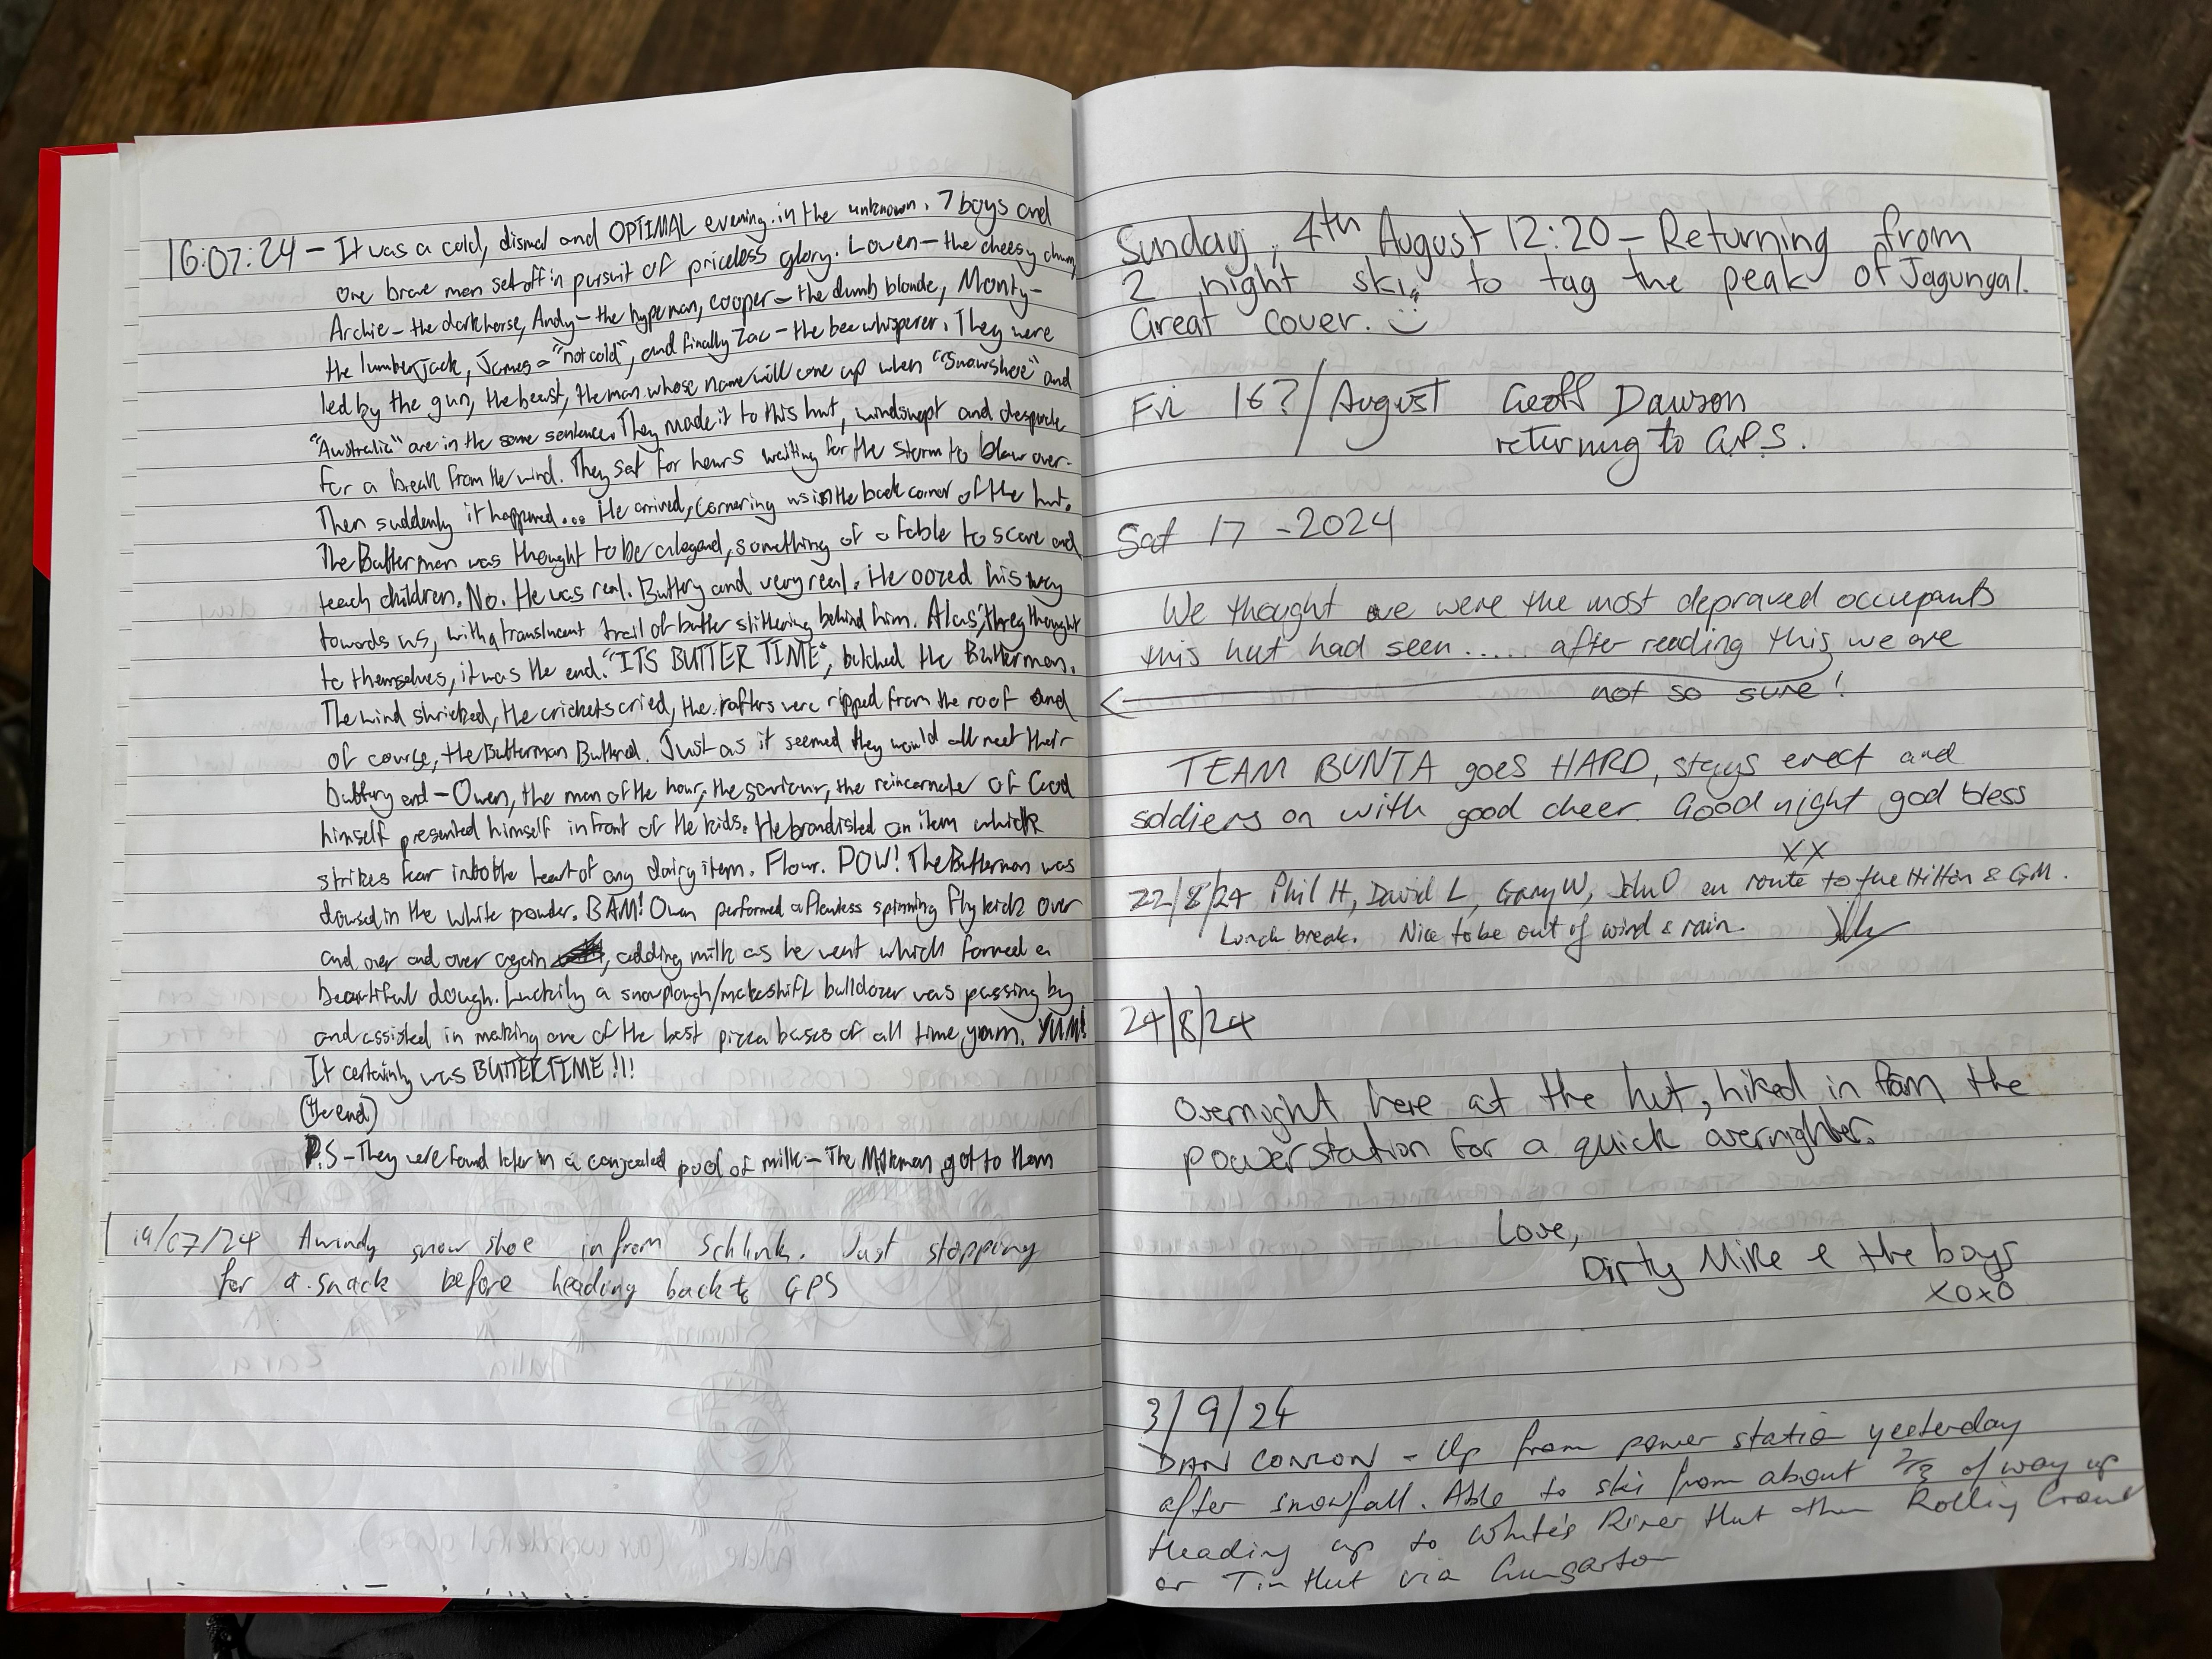 16:07:24 – It was a cold, dismal and OPTIMAL evening in the unknown. 7 boys and
one brave man set off in pursuit of priceless glory. Lowen – the cheesy chum,
Archie – the dark horse, Andy – the hypeman, Cooper – the dumb blonde, Monty –
the lumberjack, James – "not cold", and finally Zac – the bee whisperer. They were
led by the gun, the beast, the man whose name will come up when "Snowshoe" and
"Australia" are in the same sentence. They made it to this hut, windswept and desperate
for a break from the wind. They sat for hours waiting for the storm to blow over.
Then suddenly it happened... He arrived, cornering us in the back corner of the hut.
The Butterman was thought to be a legend, something of a fable to scare and
teach children. No. He was real. Buttery and very real. He oozed his way
towards us, with a translucent trail of butter slittering behind him. Alas, they thought
to themselves, it was the end. "ITS BUTTER TIME", belched the Butterman.
The wind shrieked, the crickets cried, the rafters were ripped from the roof and
of course, the Butterman Buttered. Just as it seemed they would all meet their
buttery end – Owen, the man of the hour, the saviour, the reincarnate of God
himself presented himself in front of the kids. He brandished an item which
strikes fear into the heart of any dairy item. Flour. POW! The Butterman was
dowsed in the white powder. BAM! Owen performed a flawless spinning fly kick over
and over and over again, adding milk as he went which formed a
beautiful dough. Luckily a snowplough/makeshift bulldozer was passing by
and assisted in making one of the best pizza bases of all time, yum. YUM!
It certainly was BUTTERTIME!!!
(the end)
P.S – They were found later in a congealed pool of milk – The Milkman got to them
19/07/24 A windy snow shoe in from Schlink. Just stopping
for a snack before heading back to GPS
Sunday, 4th August 12:20 – Returning from
2 night ski to tag the peak of Jagungal.
Great cover.
Fri 16?/August Geoff Dawson
returning to G.P.S.
Sat 17 - 2024
We thought we were the most depraved occupants
this hut had seen ..... after reading this we are
not so sure!
TEAM BUNTA goes HARD, stays erect and
soldiers on with good cheer. Good night god bless
XX
22/8/24 Phil H, David L, Gary W, John O en route to the Hilton & GM.
Lunch break. Nice to be out of wind & rain.
24/8/24
Overnight here at the hut, hiked in from the
powerstation for a quick overnighter.
Love,
Dirty Mike & the boys
xoxo
3/9/24
DAN CONLON – Up from power station yesterday
after snowfall. Able to ski from about 2/3 of way up
Heading up to White's River Hut then Rolling Ground
or Tin Hut via Gungartan